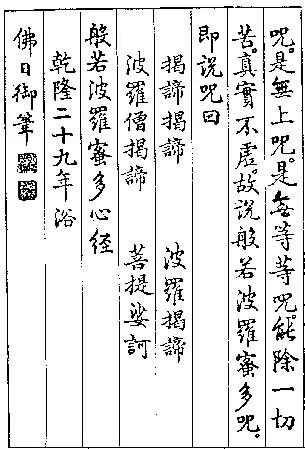 咒。是無上咒。是無等等咒。能除一切
苦。真實不虛。故説般若波羅蜜多咒。
即説咒曰
揭諦揭諦　波羅揭諦
波羅僧揭諦　菩提娑訶
般若波羅蜜多心経
乾隆二十九年浴
佛日御筆